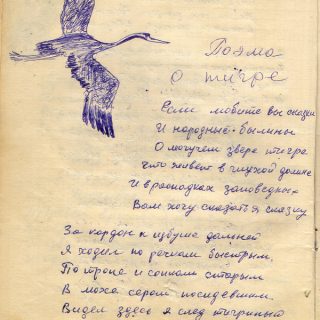 Поэма
о тигре
Если любите вы сказки
И народные былины
О могучем звере тигре
Что живет в глухой долине
И в распадках заповедных
Вам хочу сказать я сказку
За кордон к избушке дальней
Я ходил по речкам быстрым,
По тропе и сопкам старым
В мохе сером поседевшем.
Видел здесь я след тигриный